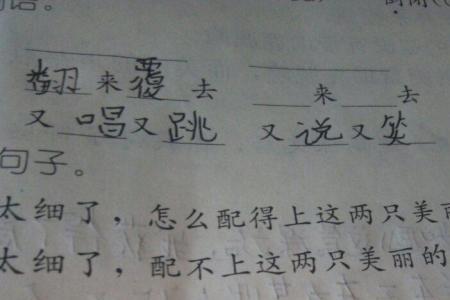 语。
翻来覆去 ___来___去
又唱又跳 又说又笑
句子。
太细了，怎么配得上这两只美丽
太细了，配不上这两只美丽的